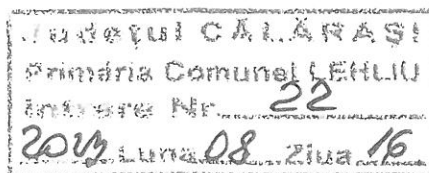 Județul CĂLĂRAȘI
Primăria Comunei LEHLIU
Intrare Nr. 22
Luna 08 Ziua 16